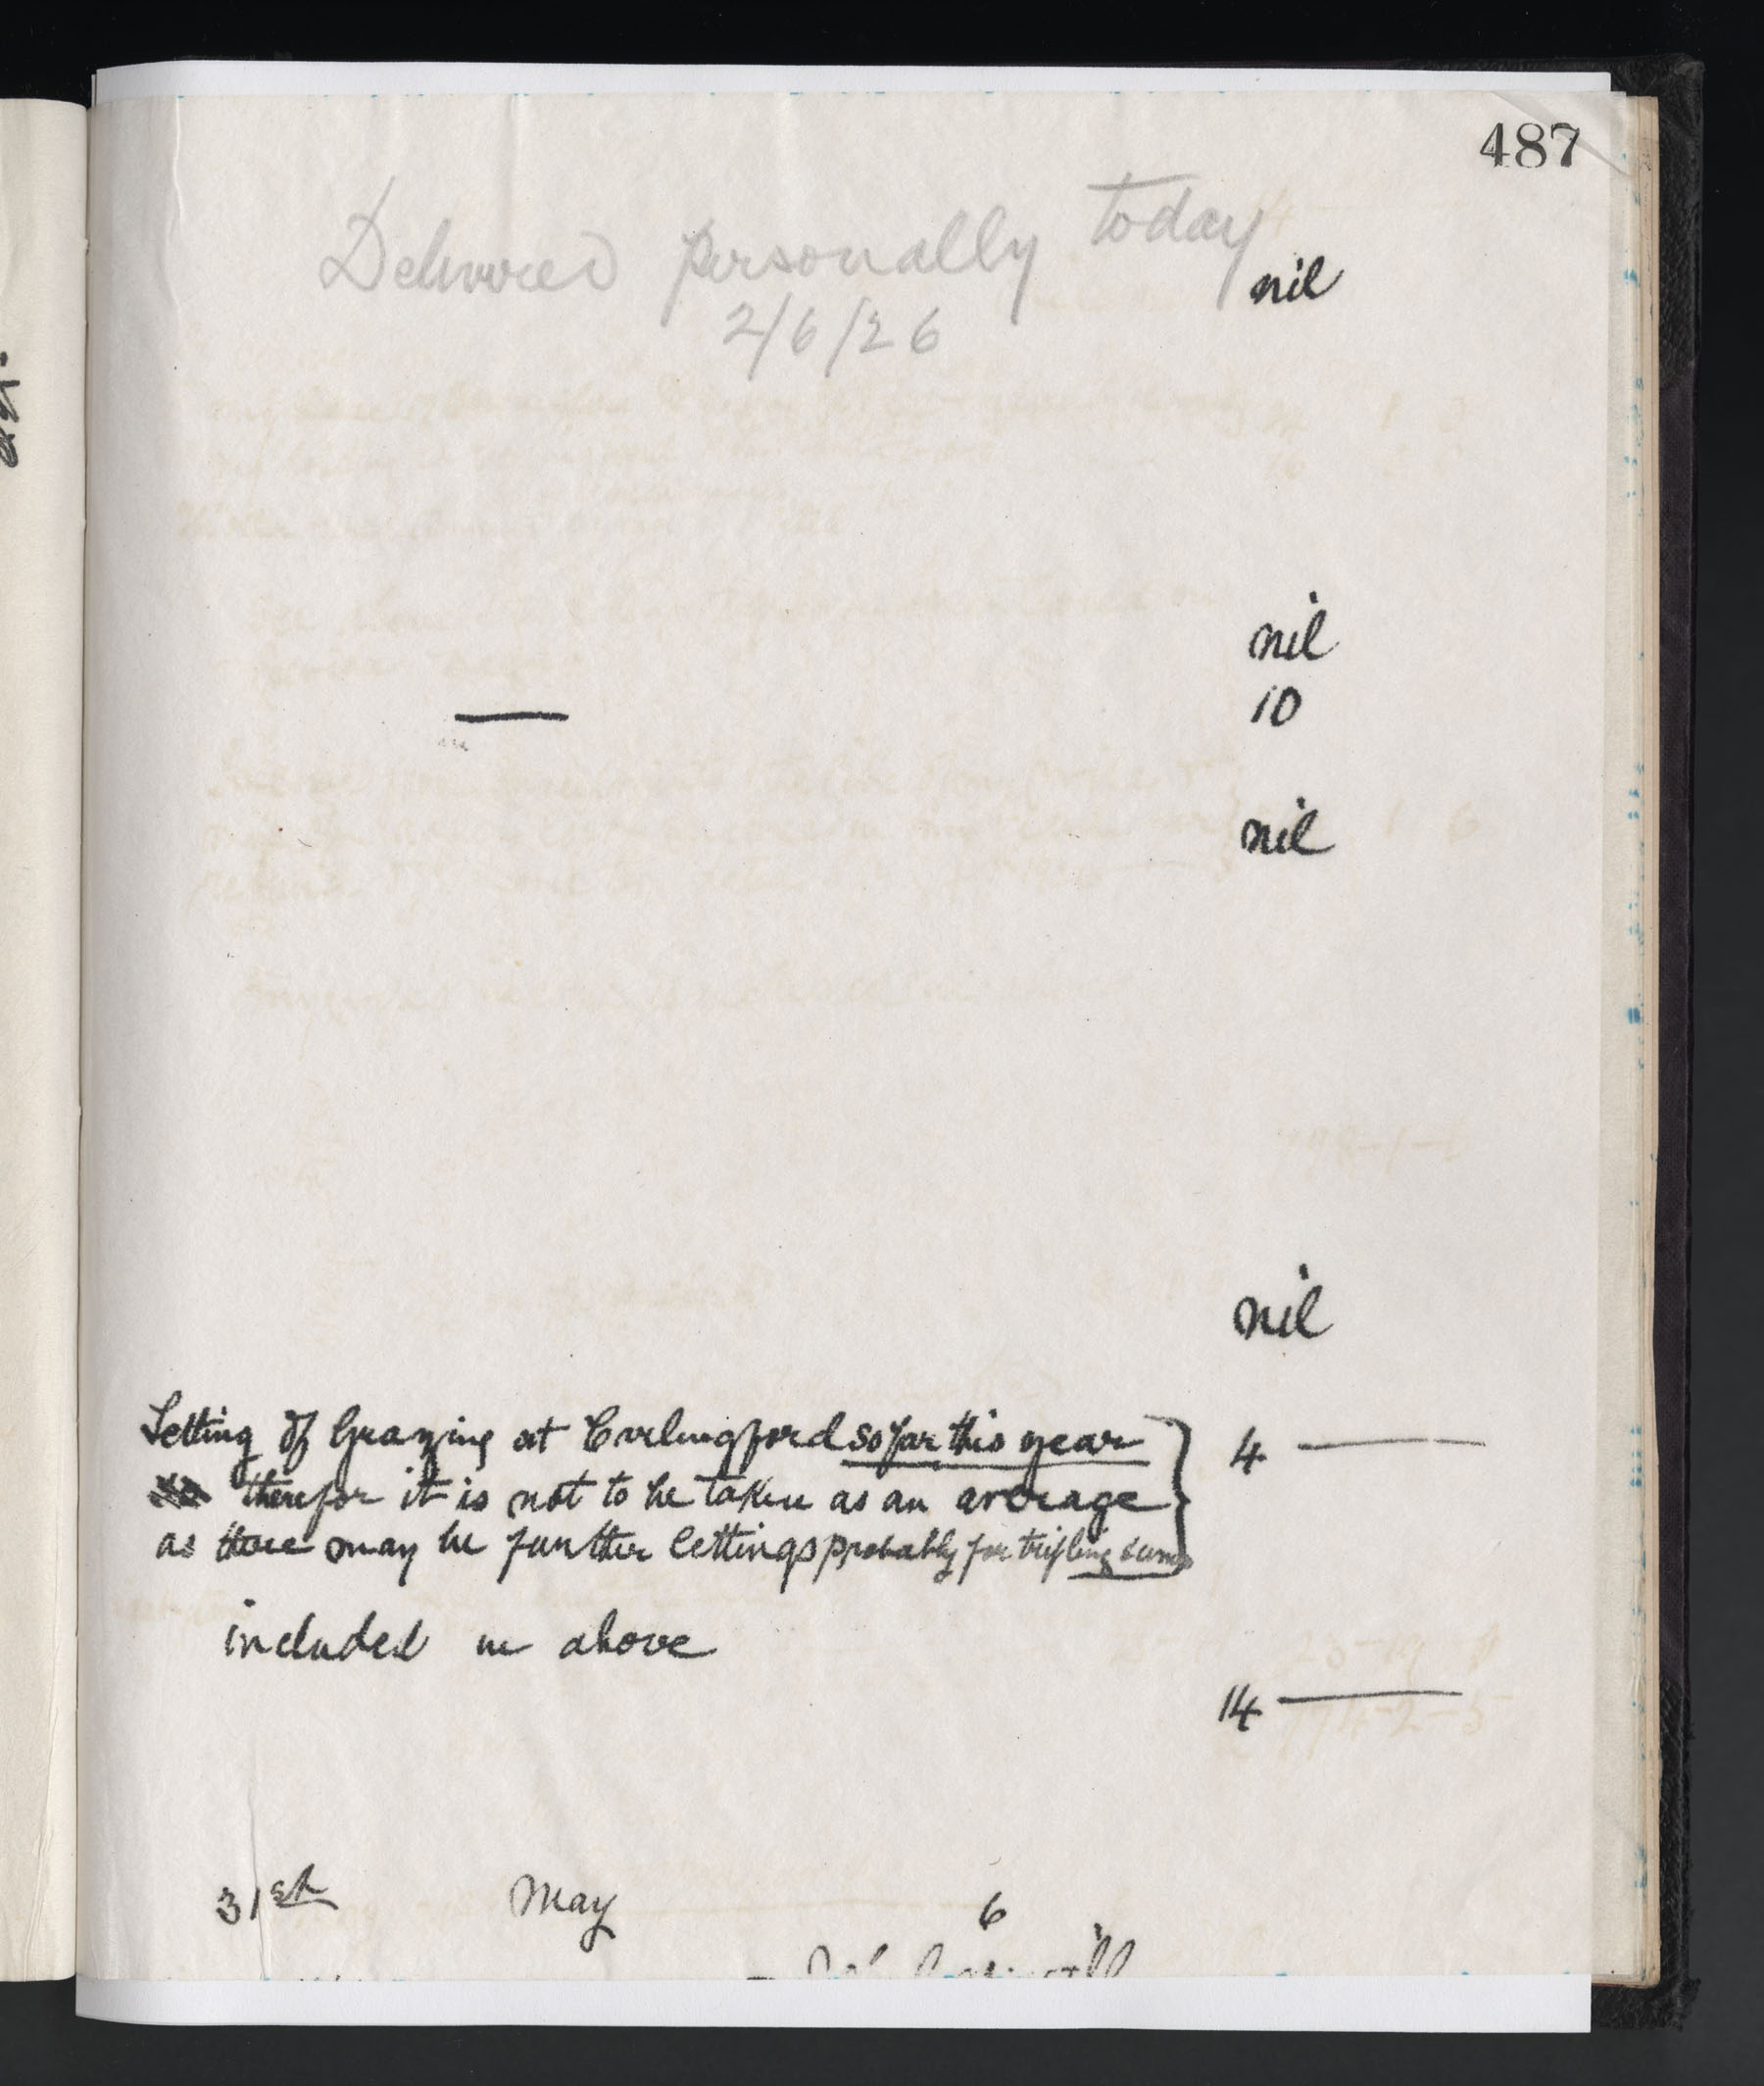 487
Delivered personally today
nil
2/6/26
nil
10
nil
nil
Letting of Grazing at Carlingford so far this year
therefor it is not to be taken as an average
as there may be further lettings probably for trifling sums
4
included in above
14
31st May 6